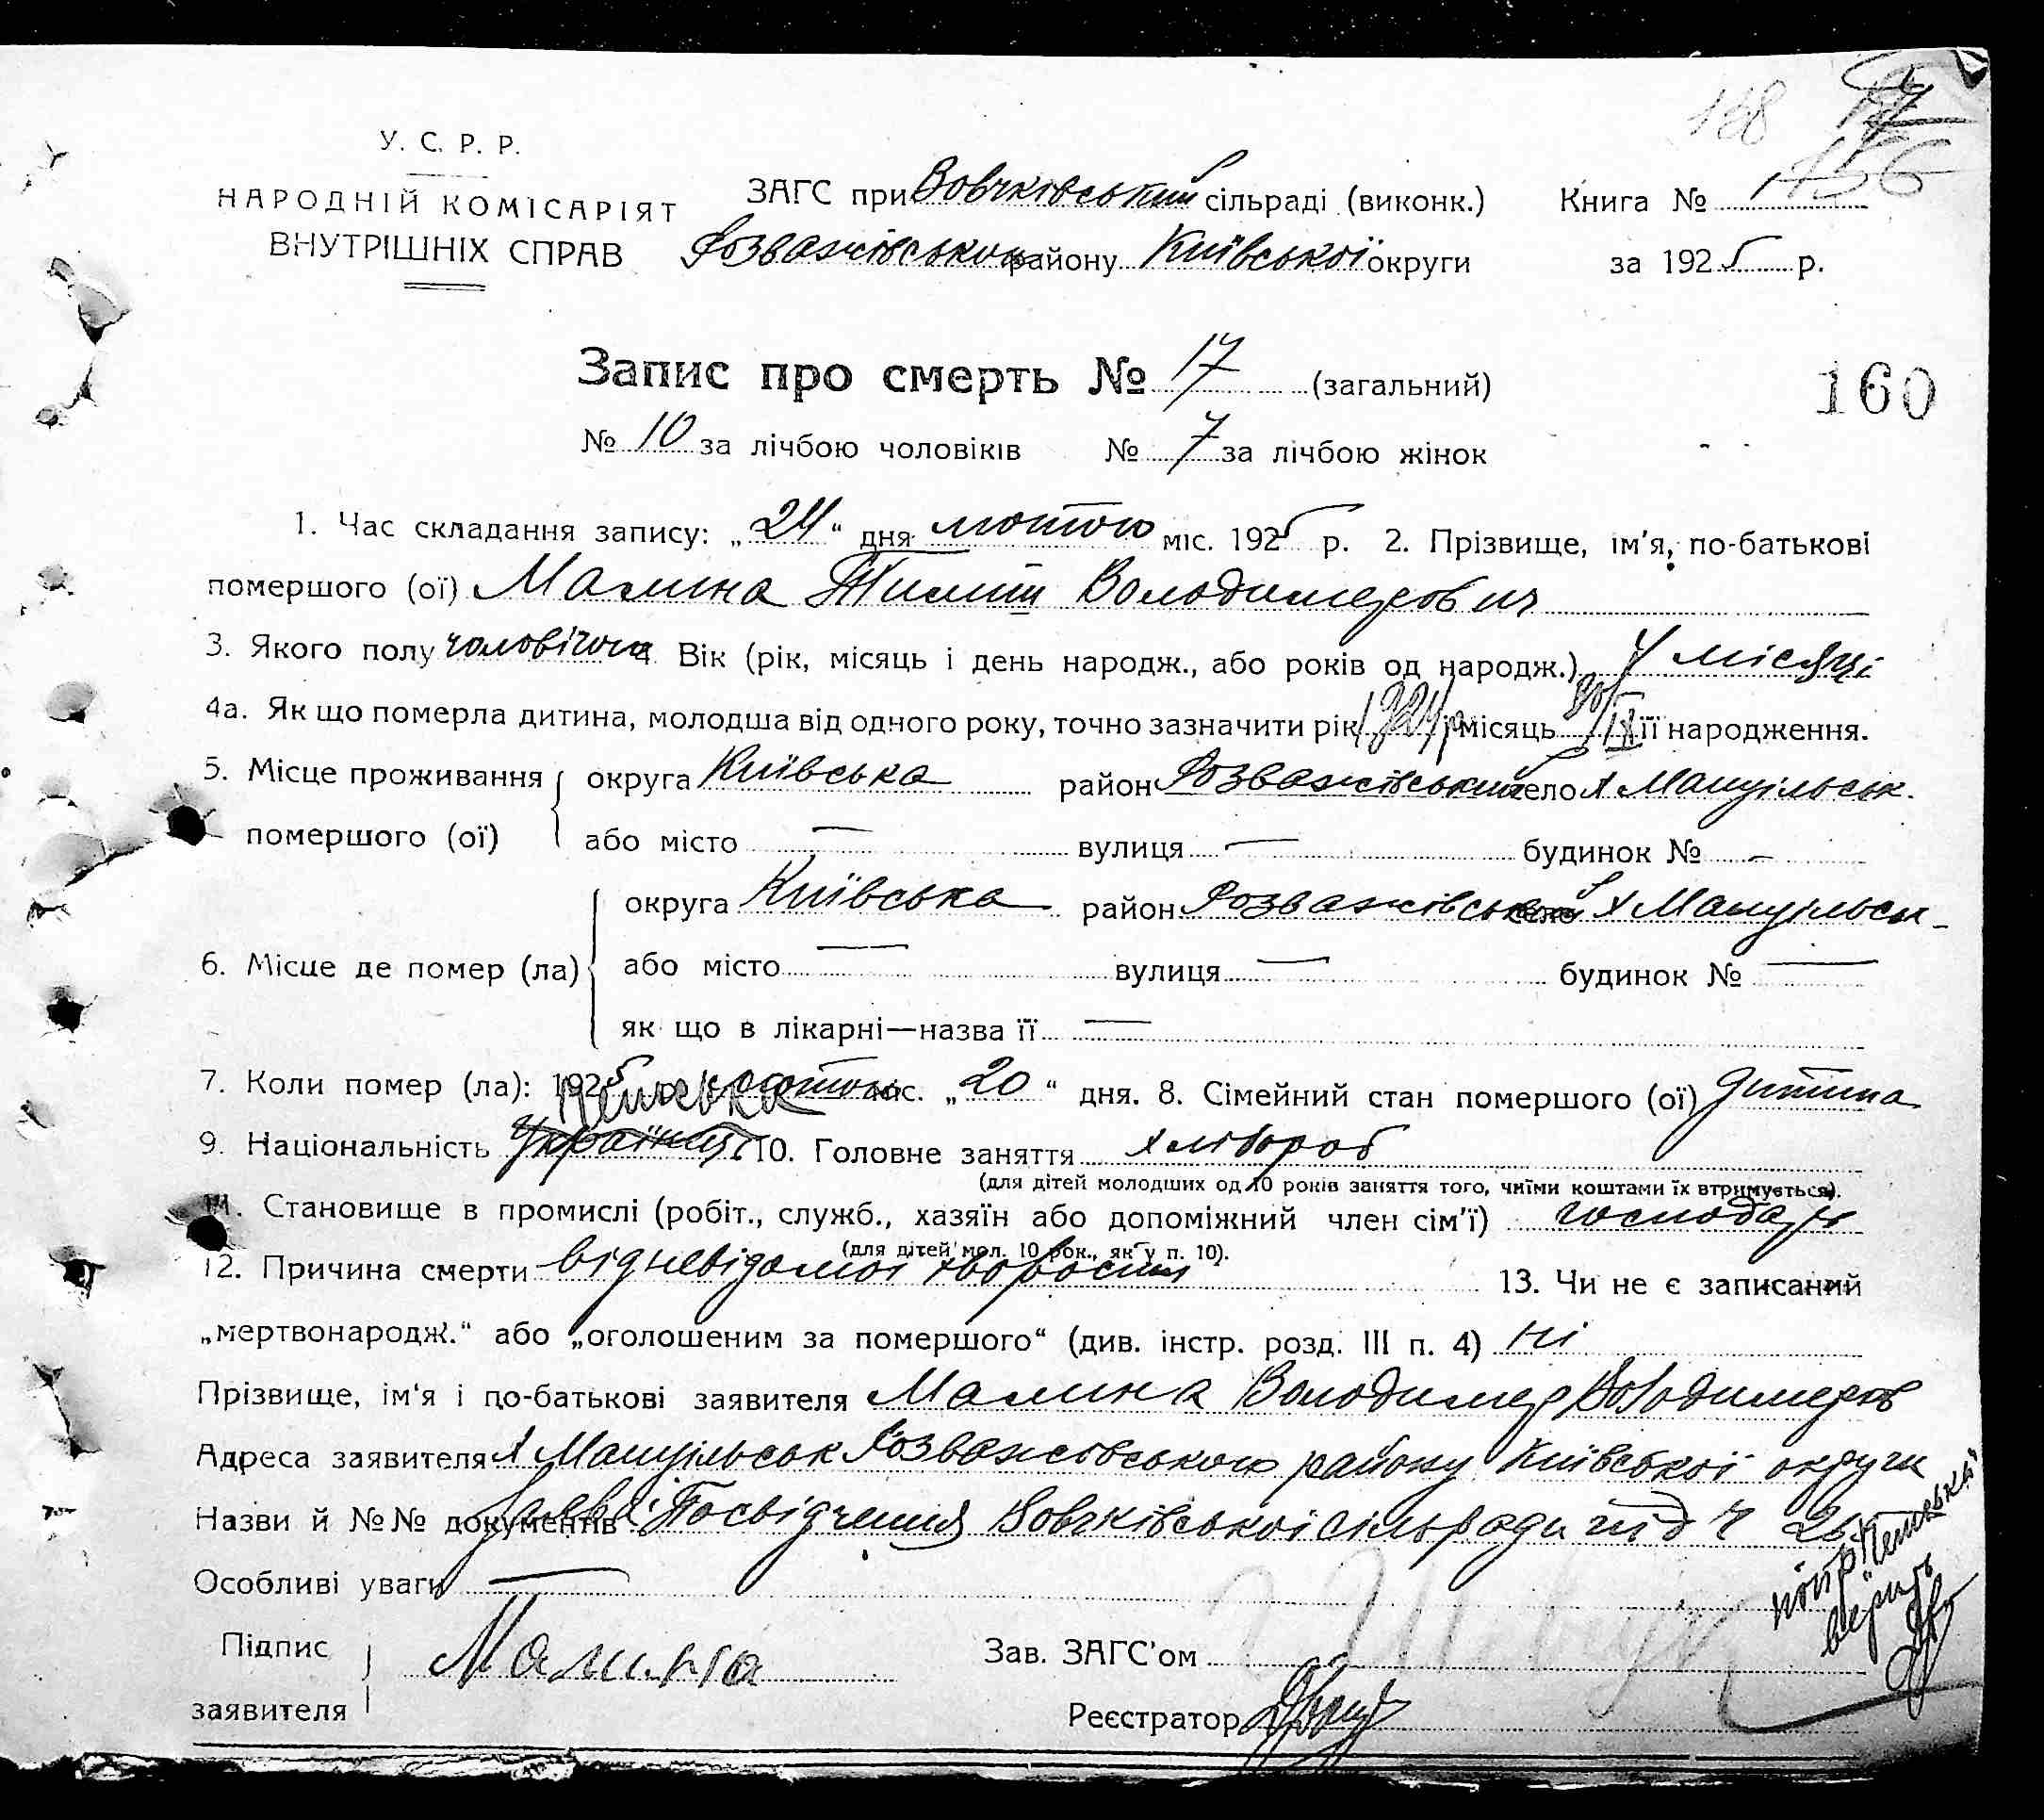 138 156
У. С. Р. Р.
НАРОДНІЙ КОМІСАРІЯТ
ВНУТРІШНІХ СПРАВ
ЗАГС при Вовчківський сільраді (виконк.) Книга № 1
Розважівського району Київської округи за 1925 р.
Запис про смерть № 17 (загальний)
160
№ 10 за лічбою чоловіків № 7 за лічбою жінок
1. Час складання запису: „24“ дня лютого міс. 1925 р. 2. Прізвище, ім'я, по-батькові
помершого (ої) Малина Володимерович
3. Якого полу чоловічого 4. Вік (рік, місяць і день народж., або років од народж.) 4 місяці
4а. Як що померла дитина, молодша від одного року, точно зазначити рік 1924 р місяць 30/IX її народження.
5. Місце проживання округа Київська район Розважівський село х Мануільськ.
помершого (ої) або місто — вулиця — будинок № —
округа Київська район Розважівський село х Мануільськ
6. Місце де помер (ла) або місто — вулиця — будинок № —
як що в лікарні—назва її —
7. Коли помер (ла): 1925 р. лютого міс. „20“ дня. 8. Сімейний стан помершого (ої) дитина
9. Національність 10. Головне заняття хлібороб
(для дітей молодших од 10 років заняття того, чиїми коштами їх втримується).
11. Становище в промислі (робіт., служб., хазяїн або допоміжний член сім'ї) господарь
(для дітей мол. 10 рок., як у п. 10).
12. Причина смерти від невідомої хворости 13. Чи не є записаний
„мертвонародж.“ або „оголошеним за помершого“ (див. інстр. розд. III п. 4) ні
Прізвище, ім'я і по-батькові заявителя Малина Володимер Володимеров
Адреса заявителя х Мануільськ Розважівського району Київської округи
Назви й №№ документів Посвідчення Вовчківської сільради під Ч 26
Особливі уваги —
Підпис
заявителя Малина
Зав. ЗАГС'ом
Реєстратор